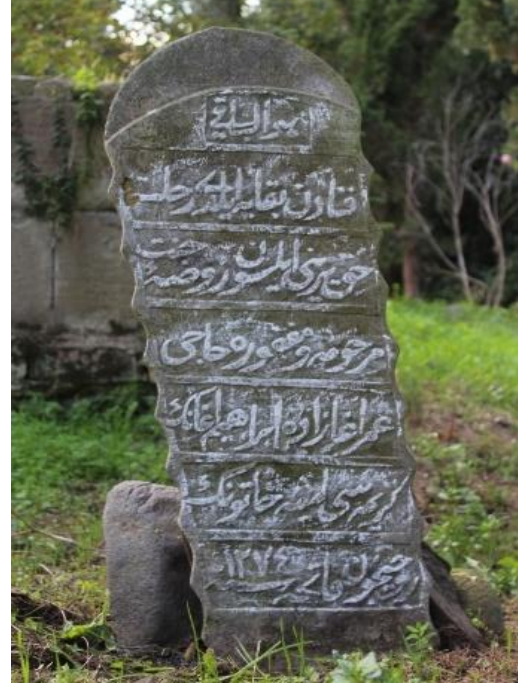 هو الباقی
فنادن بقایه ایلدی رحلت
حق یرینی ایلسون روضهٔ جنت
مرحومه و مغفوره حاجی
عمر اغا زاده ابراهیم اغانك
كریمه سی امینه خاتونك
روحیچون فاتحه سنه ١٢٧٤